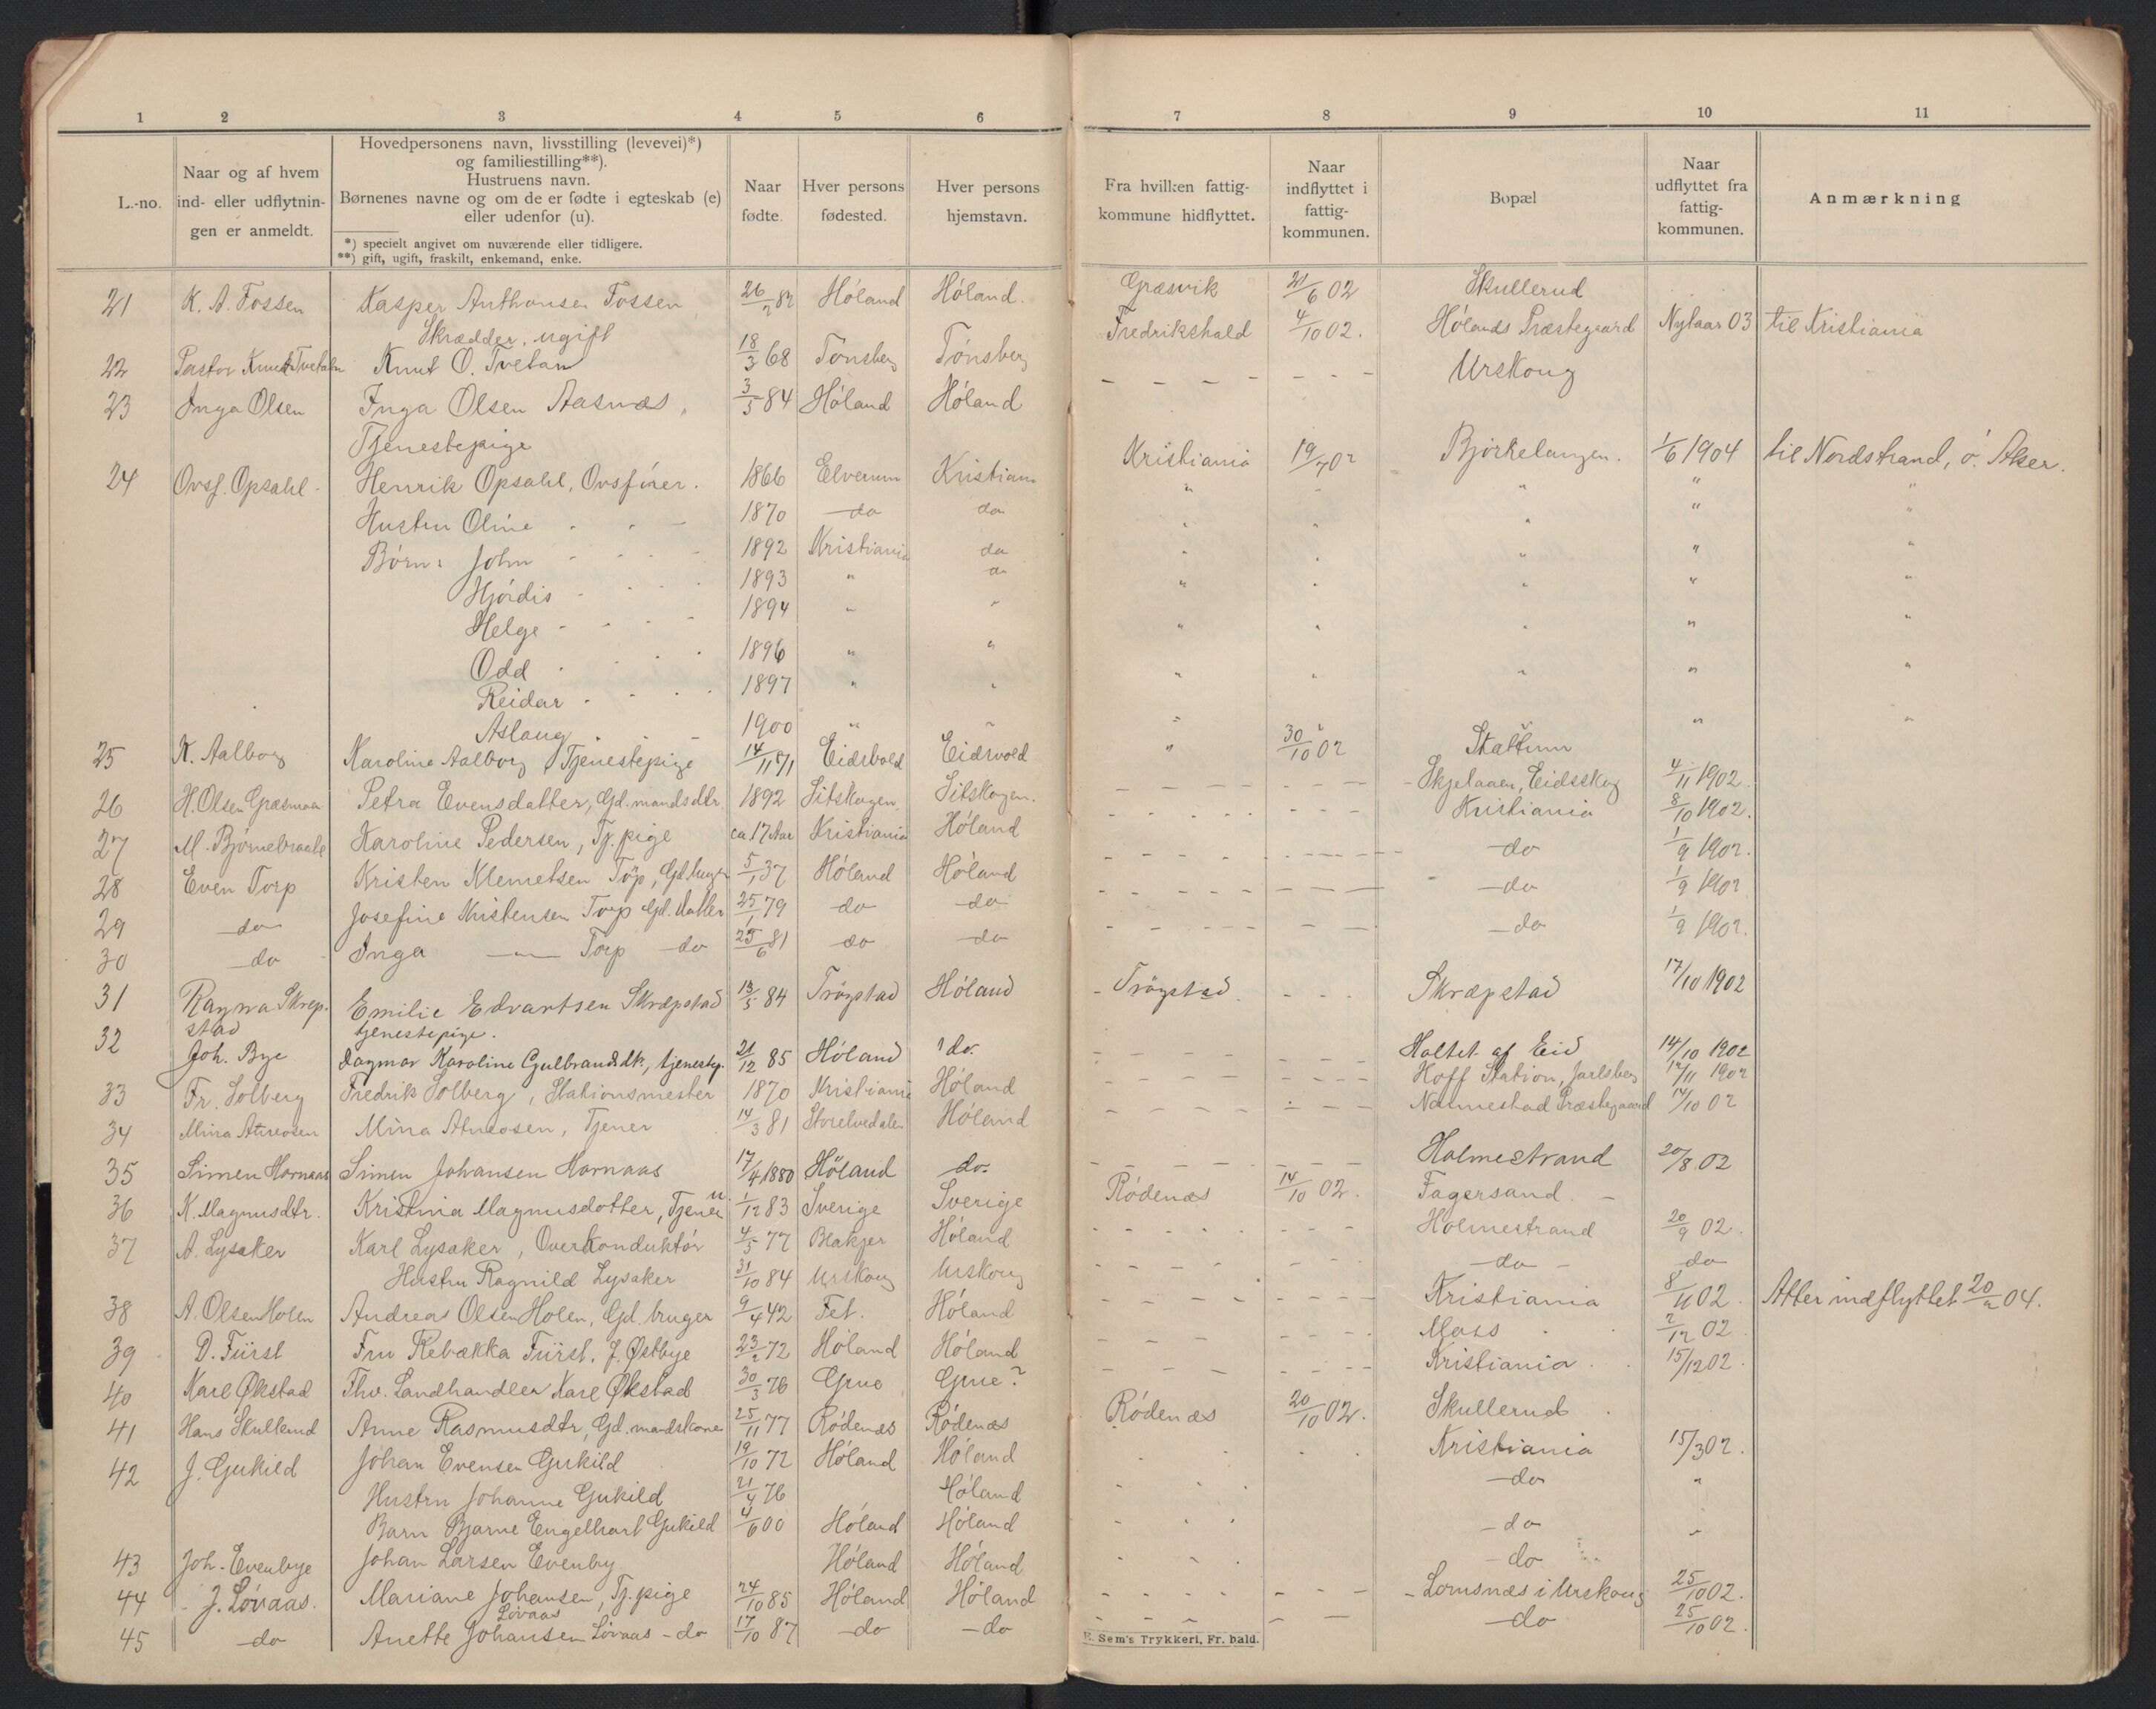 1 2 3 4 5 6 7 8 9 10 11
L.-no.
Naar og af hvem
ind- eller udflytnin-
gen er anmeldt.
Hovedpersonens navn, livsstilling (levevei)*)
og familiestilling**).
Hustruens navn.
Børnenes navne og om de er fødte i egteskab (e)
eller udenfor (u).
*) specielt angivet om nuværende eller tidligere.
**) gift, ugift, fraskilt, enkemand, enke.
Naar
fødte.
Hver persons
fødested.
Hver persons
hjemstavn.
Fra hvilken fattig-
kommune hidflyttet.
Naar
indflyttet i
fattig-
kommunen.
Bopæl
Naar
udflyttet fra
fattig-
kommunen.
Anmærkning
21 K. A. Fossen Kasper Anthonsen Fossen 26/2 82 Høland Høland. Græsvik 21/6 02 Skullerud
Skrædder, ugift
22 Pastor Knut Tvetan Knut O. Tvetan 18/3 68 Tønsberg Tønsberg Fredrikshald 4/10 02. Hølands Præstegaard Nytaar 03 til Kristiania
23 Inga Olsen Inga Olsen Aasnæs, 3/5 84 Høland Høland - - - - - - - Urskoug
Tjenestepige
24 Ovsf. Opsahl - Henrik Opsahl, Ovsfører. 1866 Elverum Kristiania Kristiania 19/7 02 Bjørkelangen. 1/6 1904 til Nordstrand, ø. Aker.
Hustru Oline - - - 1870 do do " " " " "
Børn: John - - - - 1892 Kristiania do " " " " "
Hjørdis - - - - 1893 " do " " " " "
Helge - - - - 1894 " " " " " " "
Odd - - - - 1896 " " " " " " "
Reidar - - - - 1897 " " " " " " "
Aslaug - - 1900 " " " " " "
25 K. Aalborg Karoline Aalborg, Tjenestepige 14/11 81 Eidsvold Eidsvold " 30/10 02 Staltum
26 H. Olsen Græsmoa Petra Evensdatter, Gd. mandsdtr. 1892 Sitskogen. Sitskogen. - - - - - - - - Skjelaaen, Eidsskog 4/11 1902.
27 M. Bjørnebraate Karoline Pedersen, Tj. pige ca 17 Aar Kristiania Høland - - - - - - - - Kristiania 8/10 1902.
28 Even Torp Kristen Klemetsen Torp, Gd. bruger 5/1 37 Høland Høland - - - - - - - - do 1/9 1902.
29 do Josefine Kristensen Torp Gd. datter 25/1 79 do do - - - - - - - - do 1/9 1902
30 do Inga —"— Torp do 25/6 81 do do - - - - - - - do 1/9 1902.
31 Ragna Skrep- Emilie Edvartsen Skræpstad 13/5 84 Trøgstad Høland - Trøgstad - - - Skræpstad 17/10 1902
stad tjenestepige.
32 Joh. Bye Dagmar Karoline Gulbrandsdtr., tjenestep. 21/12 85 Høland do. - - - - - - - - Holtet af Eid 14/10 1902
33 Fr. Solberg Fredrik Solberg, Stationsmester 1870 Kristiania Høland - - - - - - - - Hoff Station, Jarlsberg 12/11 1902
34 Mina Atneosen Mina Atneosen, Tjener 14/3 81 Storelvedalen Høland - - - - - - - - Nannestad Præstegaard 14/10 02
35 Simen Hornaas Simen Johansen Hornaas 17/4 1880 Høland do. - - - - - - - - Holmestrand 20/8 02
36 K. Magnusdtr. Kristina Magnusdotter, Tjener u. 1/12 83 Sverige Sverige Rødenæs 14/10 02. Fagersand. -
37 A. Lysaker Karl Lysaker, Overkonduktør 4/5 77 Blakjer Høland - - - - - - - - Holmestrand 20/9 02.
Hustru Ragnild Lysaker 31/10 84 Urskoug Urskoug - - - - - - - do - do
38 A. Olsen Holen Andreas Olsen Holen, Gd. bruger 9/4 42 Fet. Høland - - - - - - - - Kristiania 8/11 02. Atter indflyttet 20/2 04.
39 D. Fürst Fru Rebækka Fürst. f. Østbye 23/2 72 Høland Høland - - - - - - - - Moss 2/12 02
40 Karl Økstad Fhv. Landhandler Karl Økstad 30/3 76 Grue Grue? - - - - - - - - Kristiania 15/12 02.
41 Hans Skullerud Anne Rasmusdtr, Gd. mandskone 25/11 77 Rødenæs Rødenæs Rødenæs 20/10 02. Skullerud
42 J. Gukild Johan Evensen Gukild 19/10 72 Høland Høland - - - - - Kristiania 15/3 02.
Hustru Johanne Gukild 21/4 76 Høland - - - - do "
Barn Bjarne Engelhart Gukild 4/6 00 Høland Høland - - - - do "
43 Joh. Evenbye Johan Larsen Evenby Høland Høland - - - - do
44 J. Løvaas. Mariane Johansen, Tj. pige 24/10 85 Høland Høland - - - - - - - - Lomsnæs i Urskoug 25/10 02.
Løvaas
45 do Anette Johansen Løvaas - do 17/10 87 do - do - - - - - do 25/10 02.
E. Sem's Trykkeri, Fr. hald.